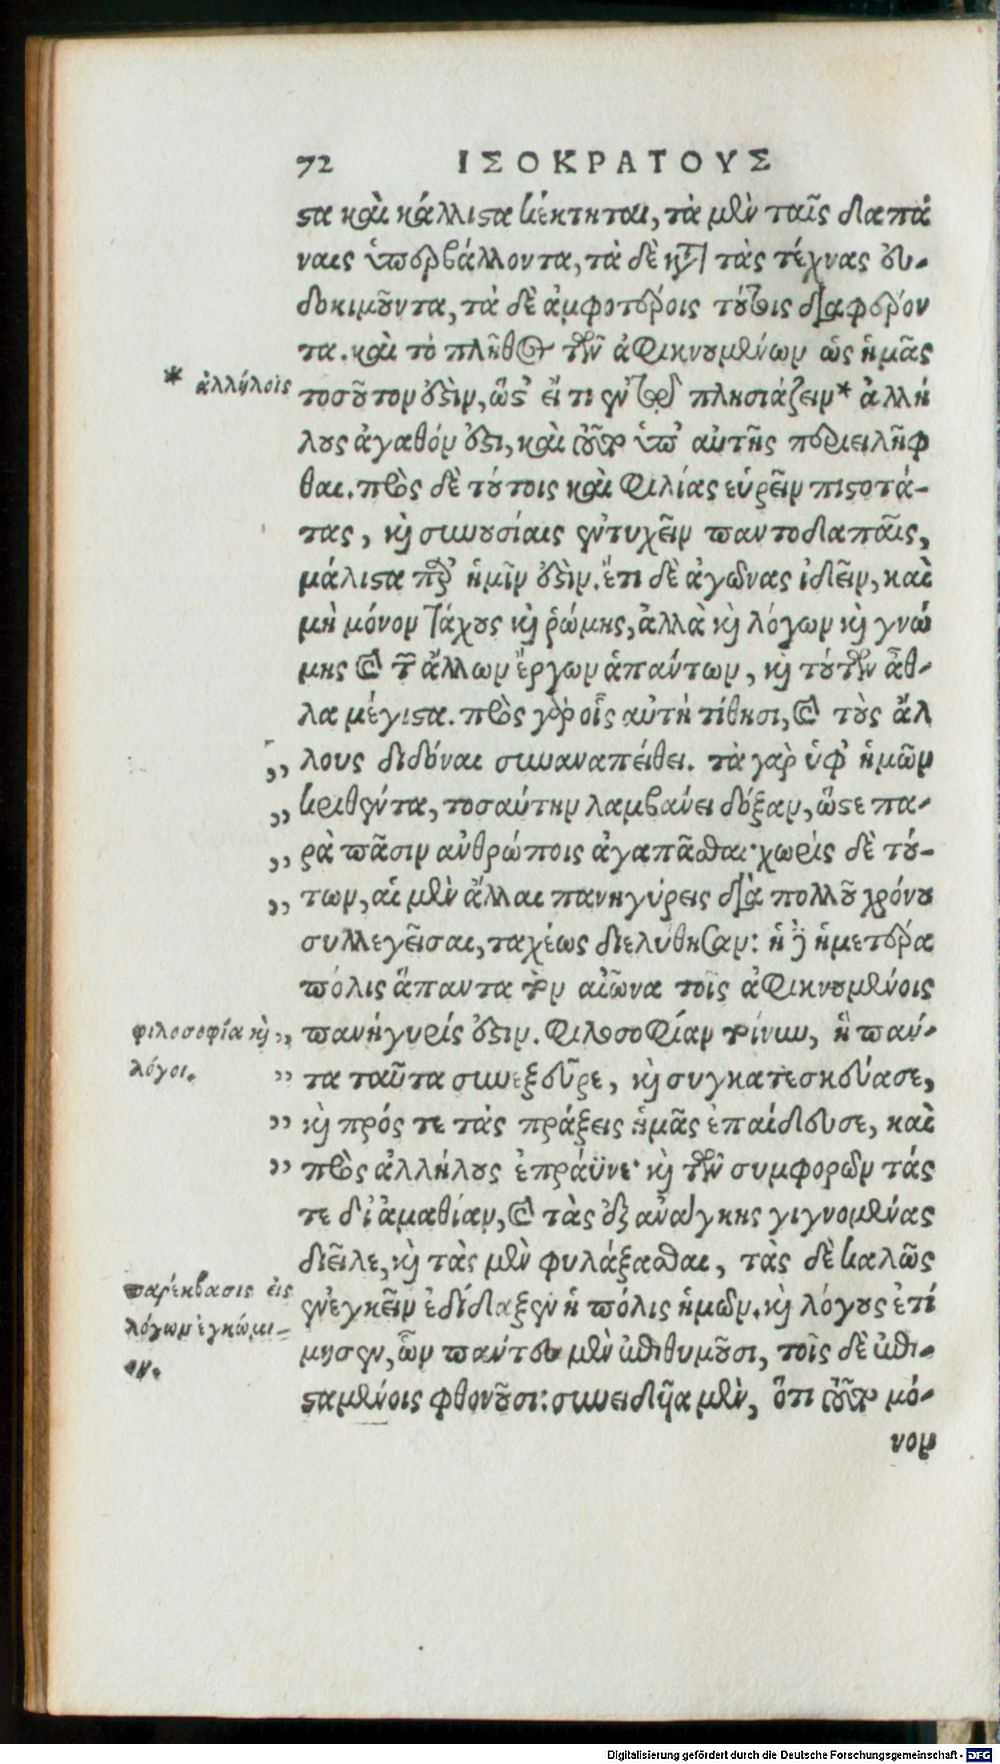 72 ΙΣΟΚΡΑΤΟΥΣ
στα καὶ κάλλιστα κέκτηται, τὰ μὲν ταῖς δαπά
ναις ὑπερβάλλοντα, τὰ δὲ κατὰ τὰς τέχνας εὐ-
δοκιμοῦντα, τὰ δὲ ἀμφοτέροις τούτοις διαφέρον
τα. καὶ τὸ πλῆθος τῶν ἀφικνουμένων ὡς ἡμᾶς
* ἀλλήλοις
τοσοῦτον ἐστὶν, ὥστ' εἴ τι ἐν τῷ πλησιάζειν* ἀλλή
λους ἀγαθόν ἐστι, καὶ τοῦτο ὑπ' αὐτῆς περιειλῆφ
θαι. πρὸς δὲ τούτοις καὶ φιλίας εὑρεῖν πιστοτά-
τας, καὶ συνουσίαις ἐντυχεῖν παντοδαπαῖς,
μάλιστα παρ' ἡμῖν ἐστὶν. ἔτι δὲ ἀγῶνας ἰδεῖν, καὶ
μὴ μόνον τάχους καὶ ῥώμης, ἀλλὰ καὶ λόγων καὶ γνώ
μης καὶ τῶν ἄλλων ἔργων ἁπάντων, καὶ τούτων ἆθ-
λα μέγιστα. πρὸς γὰρ οἷς αὐτὴ τίθησι, καὶ τοὺς ἄλ
„ λους διδόναι συναναπείθει. τὰ γὰρ ὑφ' ἡμῶν
„ κριθέντα, τοσαύτην λαμβάνει δόξαν, ὥστε πα-
„ ρὰ πᾶσιν ἀνθρώποις ἀγαπᾶσθαι· χωρὶς δὲ τού-
„ των, αἱ μὲν ἄλλαι πανηγύρεις διὰ πολλοῦ χρόνου
συλλεγεῖσαι, ταχέως διελύθησαν: ἡ δ' ἡμετέρα
πόλις ἅπαντα τὸν αἰῶνα τοῖς ἀφικνουμένοις
φιλοσοφία καὶ
λόγοι.
„ πανήγυρίς ἐστιν. φιλοσοφίαν τοίνυν, ἣ πάν-
„ τα ταῦτα συνεξεῦρε, καὶ συγκατεσκεύασε,
„ καὶ πρός τε τὰς πράξεις ἡμᾶς ἐπαίδευσε, καὶ
„ πρὸς ἀλλήλους ἐπράϋνε· καὶ τῶν συμφορῶν τάς
τε δι' ἀμαθίαν, καὶ τὰς ἐξ ἀνάγκης γιγνομένας
διεῖλε, καὶ τὰς μὲν φυλάξασθαι, τὰς δὲ καλῶς
παρέκβασις εἰς
λόγων ἐγκώμι-
ον.
ἐνεγκεῖν ἐδίδαξεν ἡ πόλις ἡμῶν. καὶ λόγους ἐτί
μησεν, ὧν πάντες μὲν ἐπιθυμοῦσι, τοῖς δὲ ἐπι-
σταμένοις φθονοῦσι: συνειδυῖα μὲν, ὅτι τοῦτο μό-
νον
Digitalisierung gefördert durch die Deutsche Forschungsgemeinschaft - DFG